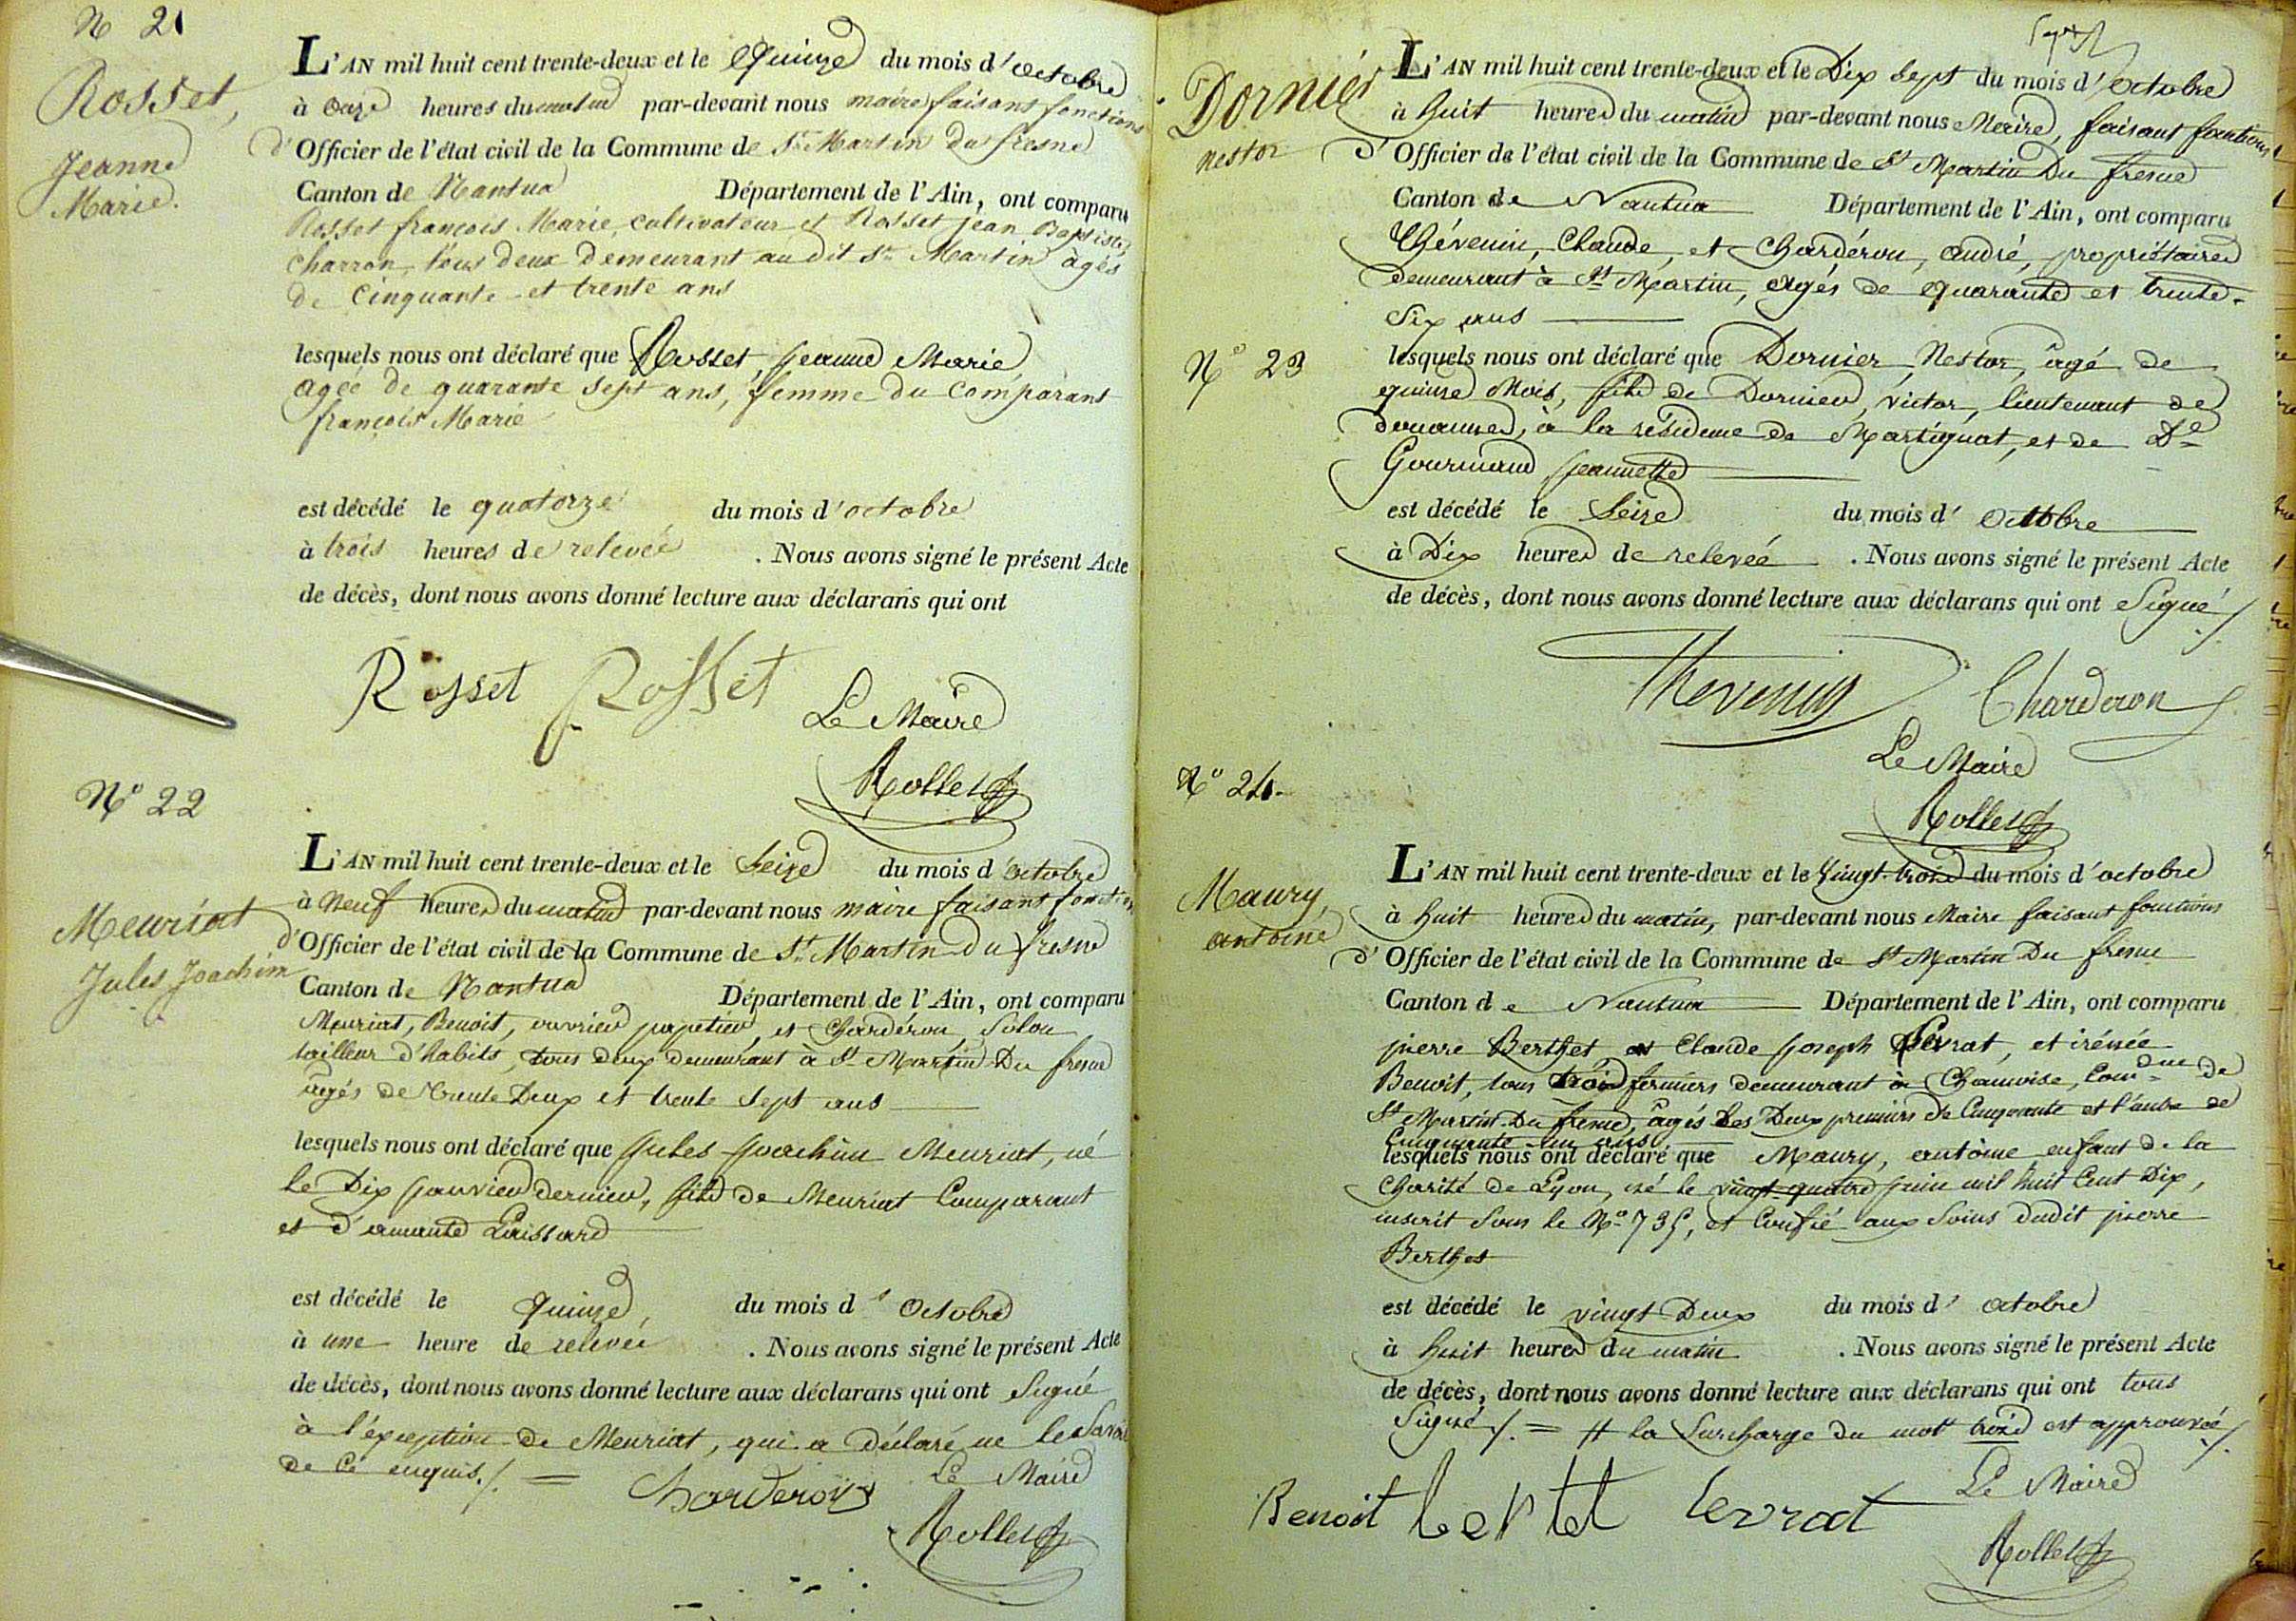 N 21
Rosset,
Jeanne
Marie.
L'AN mil huit cent trente-deux et le quinze du mois d'octobre
à onze heures du matin par-devant nous maire faisant fonctions
d'Officier de l'état civil de la Commune de St Martin du fresne
Canton de Nantua Département de l'Ain, ont comparu
Rosset françois Marie, cultivateur et Rosset jean Baptiste,
charron, tous deux demeurant au dit St Martin âgés
de cinquante et trente ans
lesquels nous ont déclaré que Rosset, jeanne Marie
agée de quarante sept ans, femme du comparant
françois Marie
est décédé le quatorze du mois d'octobre
à trois heures de relevée . Nous avons signé le présent Acte
de décès, dont nous avons donné lecture aux déclarans qui ont
Rosset Rosset Le Maire
Rollet
No 22
Meuriat
Jules Joachim
L'AN mil huit cent trente-deux et le seize du mois d'octobre
à Neuf heures du matin par-devant nous maire faisant fonctions
d'Officier de l'état civil de la Commune de St Martin du fresne
Canton de Nantua Département de l'Ain, ont comparu
Meuriat, Benoit, ouvrier papetier, et Chardéron, Solon
tailleur d'habits, tous deux demeurant à St Martin Du fresne
âgés de trente Deux et trente sept ans
lesquels nous ont déclaré que jules joachim Meuriat, né
le Dix janvier dernier, fils de Meuriat Comparant
et d'amante Laissard
est décédé le quinze, du mois d'Octobre
à une heure de relevée . Nous avons signé le présent Acte
de décès, dont nous avons donné lecture aux déclarans qui ont signé
à l'éxception de Meuriat, qui a déclaré ne le savoir
de ce enquis./. = Charderon Le Maire
Rollet
Dornier
nestor
N° 23
L'AN mil huit cent trente-deux et le Dix sept du mois d'octobre
à huit heures du matin par-devant nous Maire, faisant fonctions
d'Officier de l'état civil de la Commune de St Martin Du fresne
Canton de Nantua Département de l'Ain, ont comparu
Thévenin, Claude, et Chardéron, André, propriétaires
demeurant à St Martin, agés de quarante et trente-
six ans
lesquels nous ont déclaré que Dornier, Nestor, âgé de
quinze Mois, fils de Dornier, victor, lieutenant de
douannes, à la résidence de Martignat, et de De
Gourmand jeannette
est décédé le Seize du mois d'Octobre
à Dix heures de relevée . Nous avons signé le présent Acte
de décès, dont nous avons donné lecture aux déclarans qui ont signé./.
Thevenin Charderon
Le Maire
Rollet
N° 24.
Maury,
antoine
L'AN mil huit cent trente-deux et le vingt-trois du mois d'octobre
à huit heures du matin, par-devant nous Maire faisant fonctions
d'Officier de l'état civil de la Commune de St Martin Du fresne
Canton de Nantua Département de l'Ain, ont comparu
pierre Berthet et Claude joseph Levrat, et irénée
Benoit, tous trois fermiers demeurant à Chamoise, Comune de
St Martin Du fresne, âgés Les Deux premiers de Cinquante et l'autre de
Cinquante un ans
lesquels nous ont déclaré que Maury, antoine enfant de la
charité de Lyon, né le vingt quatre juin mil huit Cent Dix,
inscrit sous le No 735, et Confié aux soins dudit pierre
Berthet
est décédé le vingt Deux du mois d'octobre
à huit heures du matin . Nous avons signé le présent Acte
de décès, dont nous avons donné lecture aux déclarans qui ont tous
signé ./. = # la surcharge du mot trois est approuvée ./.
Benoit bertet levrat Le Maire
Rollet